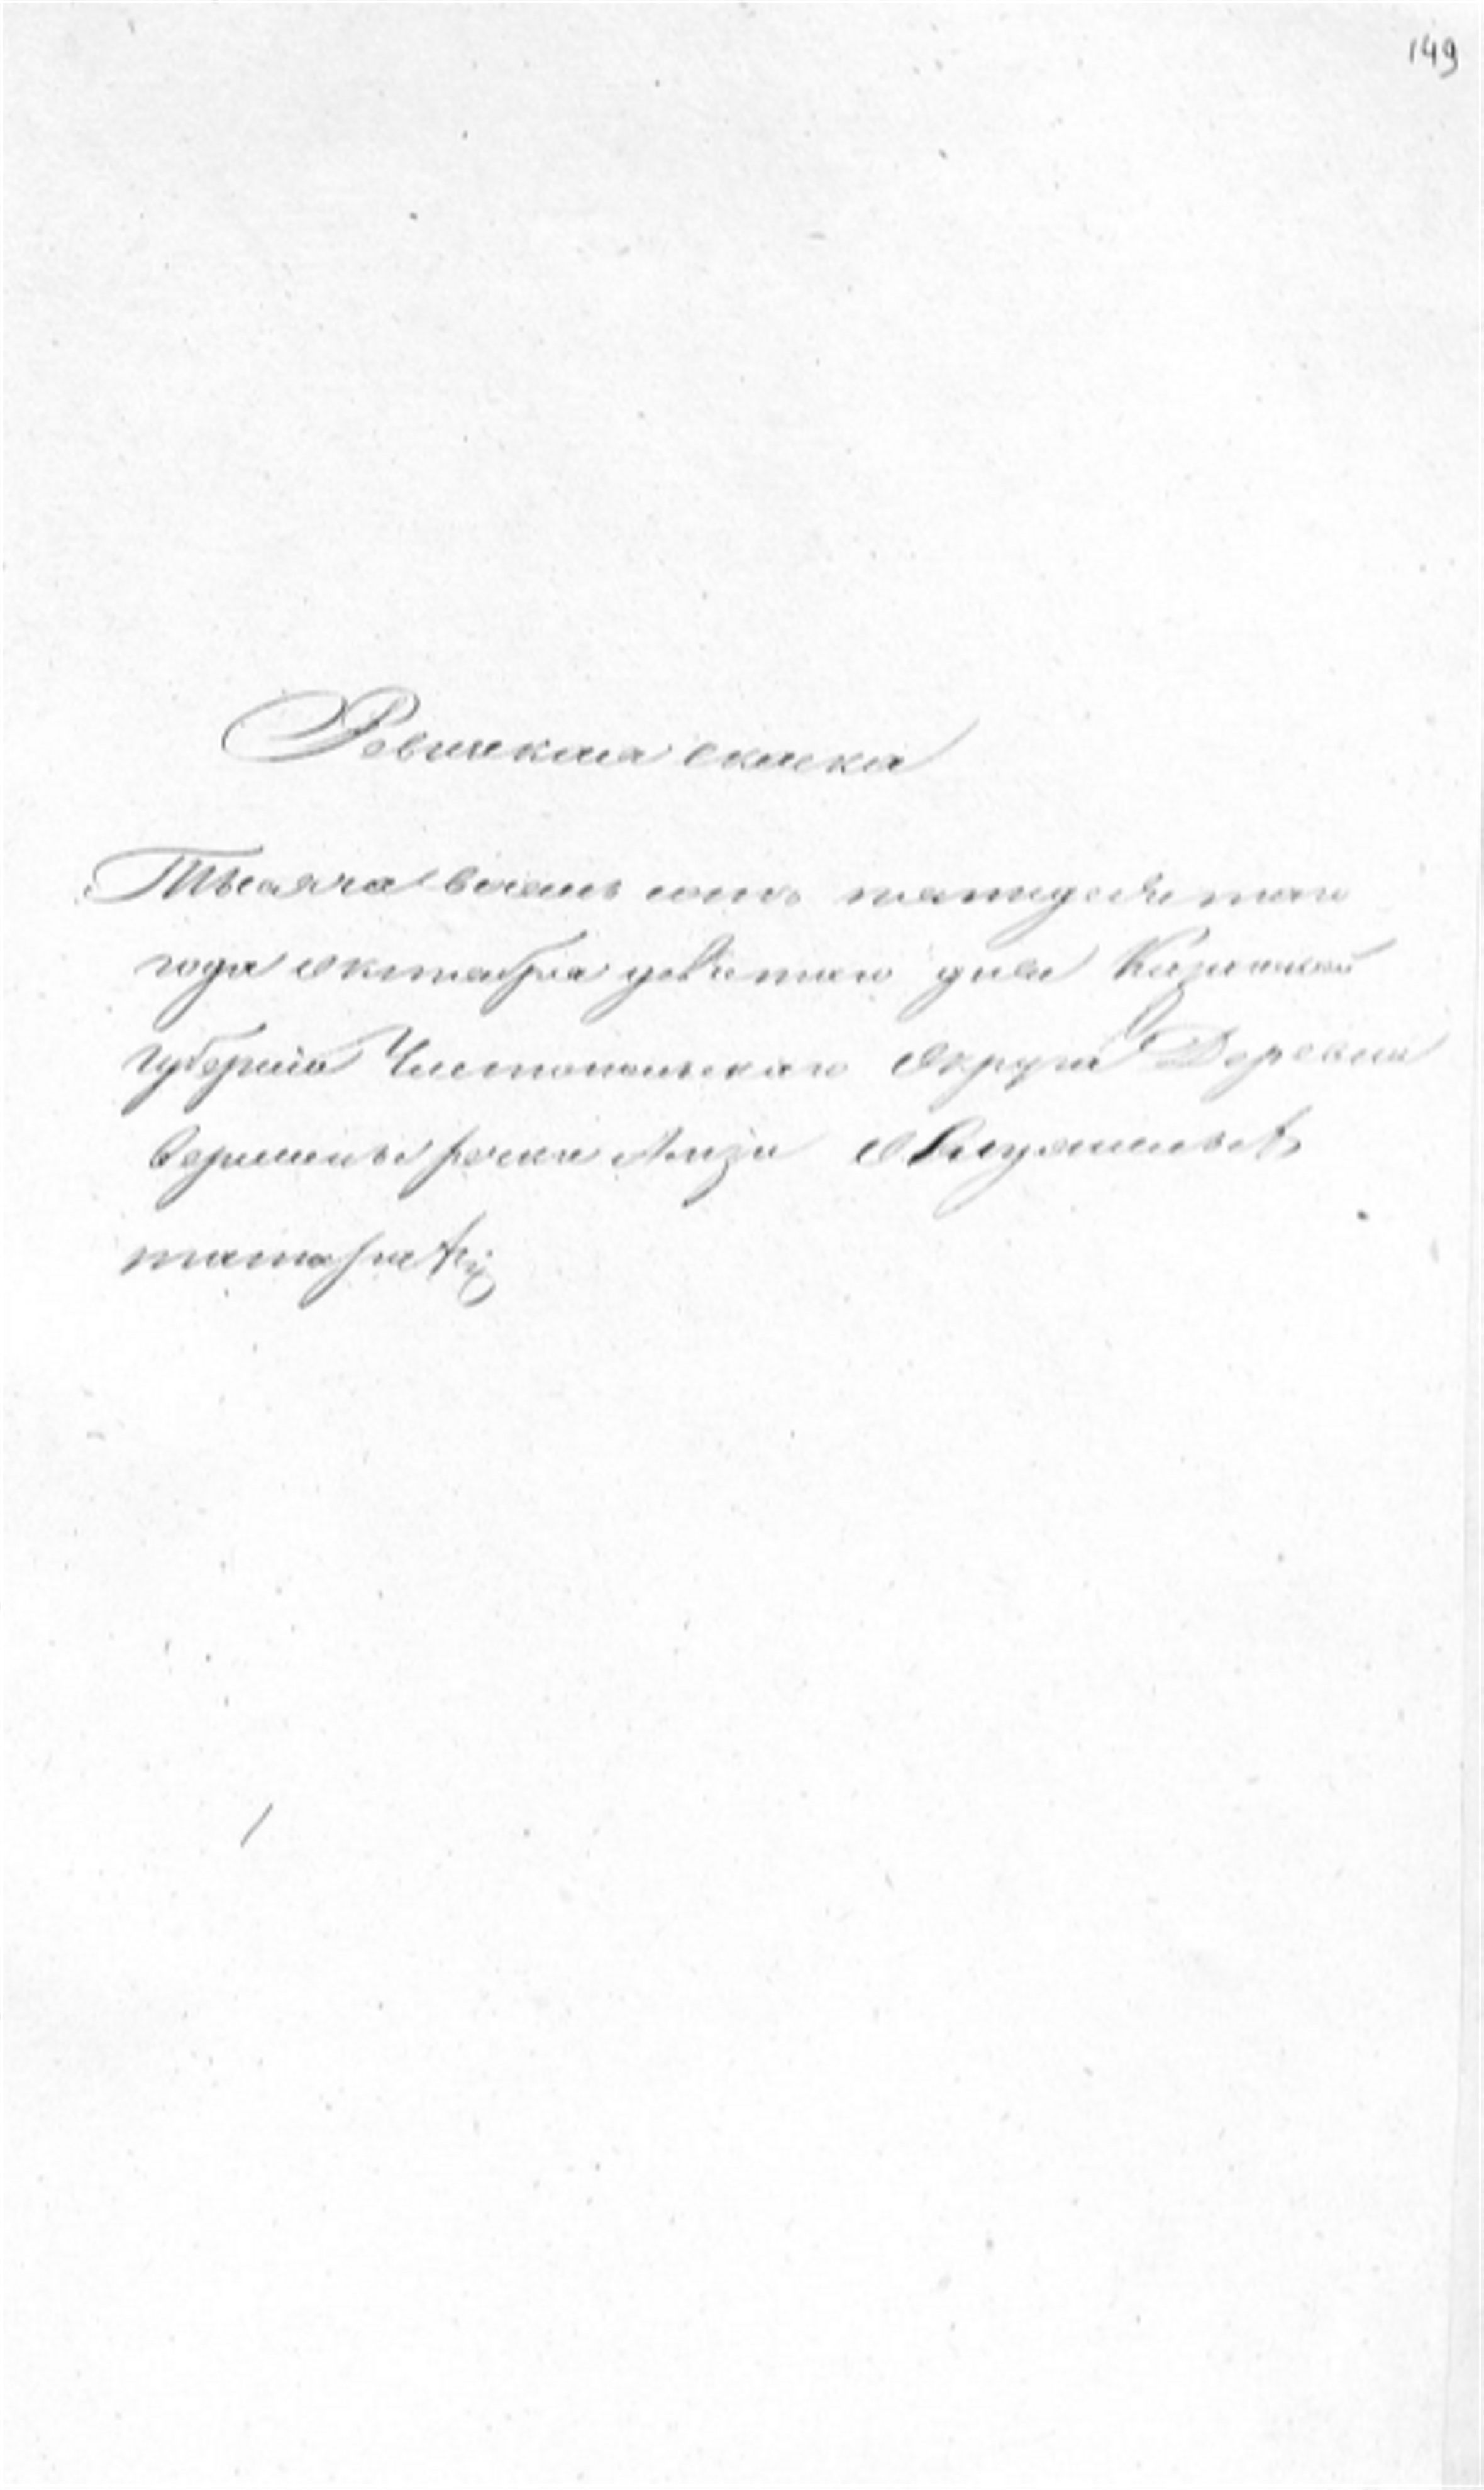 149
Ревизская скаска
Тысяча восемь сотъ пятидесятаго
года октября девятаго дня Казанской
губернiи Чистопольскаго Округа Деревни
Вершины речки
татаръ